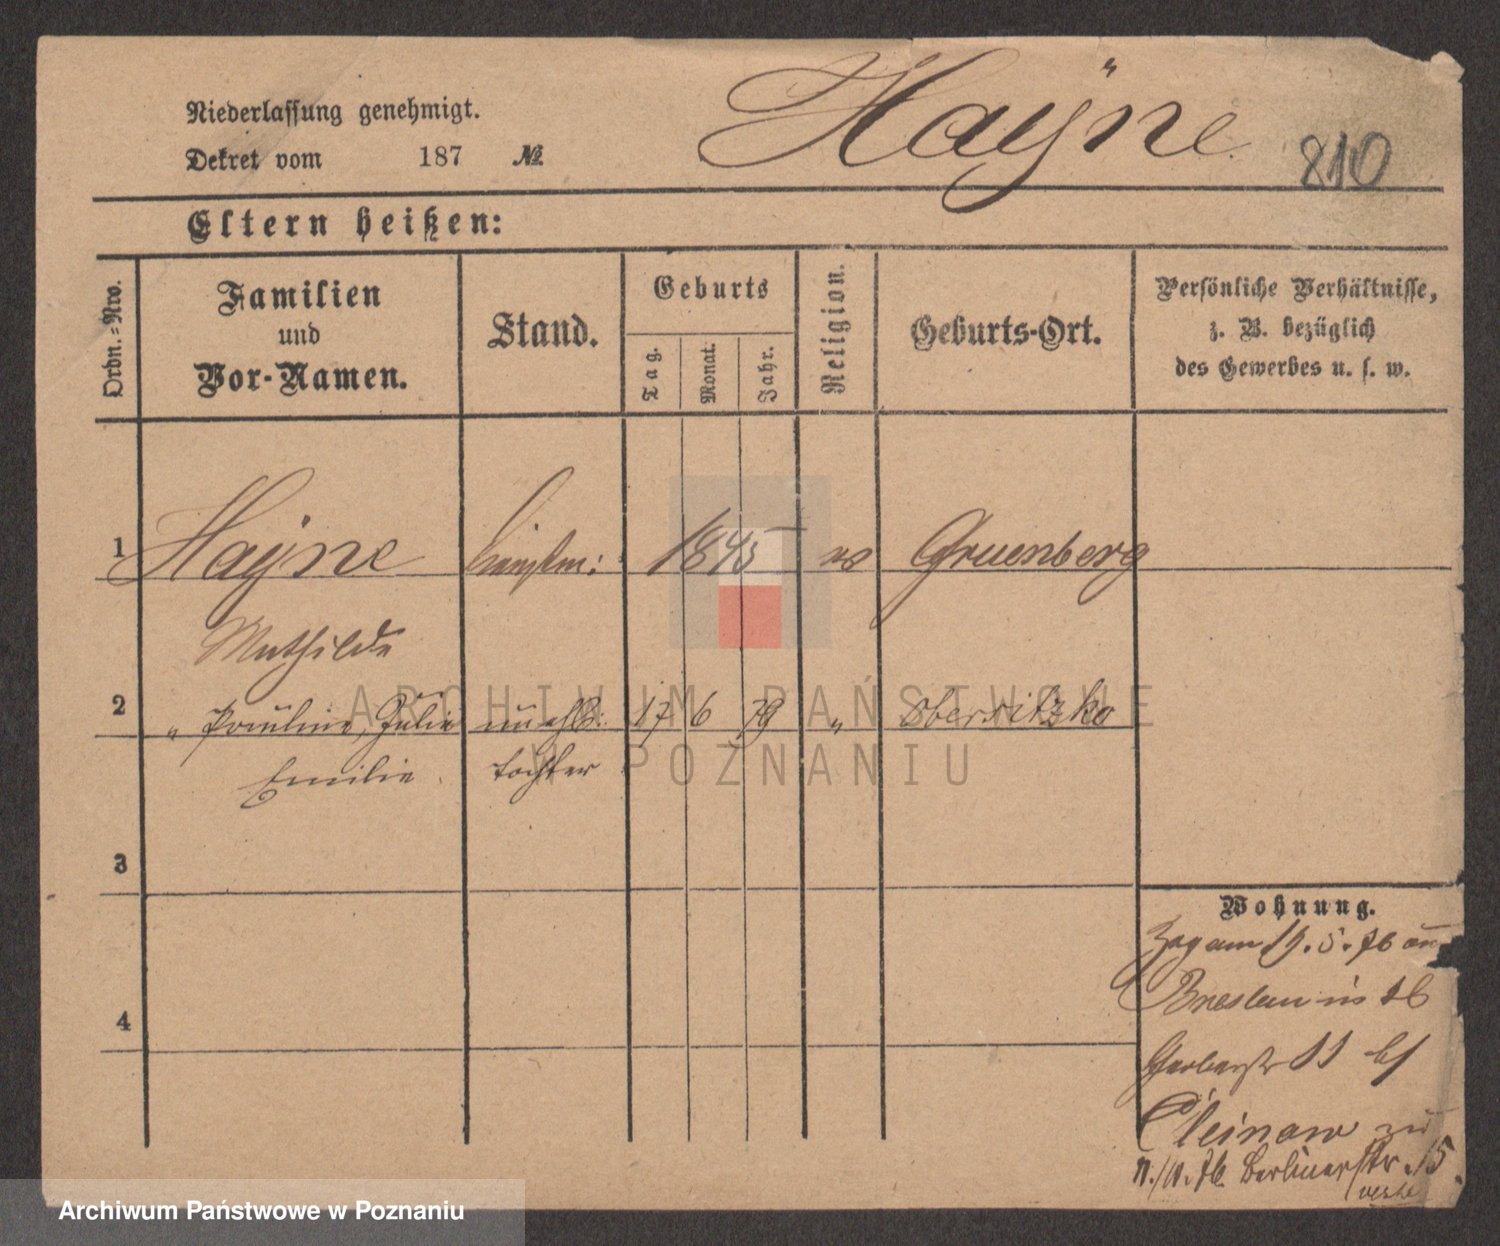 Niederlassung genehmigt.
Dekret vom 187 №
Haÿne
810
Eltern heißen:
Ordn.=Nro.
Familien
und
Vor-Namen.
Stand.
Geburts
Tag.
Monat.
Jahr.
Religion.
Geburts-Ort.
Persönliche Verhältnisse,
z. B. bezüglich
des Gewerbes u. s. w.
1 Haÿne 1845 Gruenberg
Mathilde
2 " Pauline, Julie unehl: 17 6 79 " Obersitzko
Emilie tochter
3
4
Wohnung.
Zog am 19.5.76 aus
Breslau in
Gerberstr 11 bei
Cleinow zu
Berlinerstr. 15
ARCHIWUM PAŃSTWOWE
W POZNANIU
Archiwum Państwowe w Poznaniu